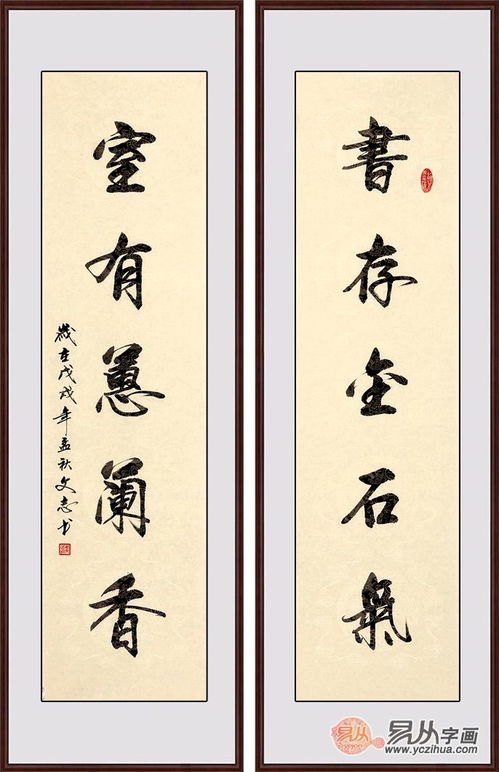 書存金石氣
室有蕙蘭香
歲在戊戌年孟秋文志书
易从
易从字画
www.yczihua.com